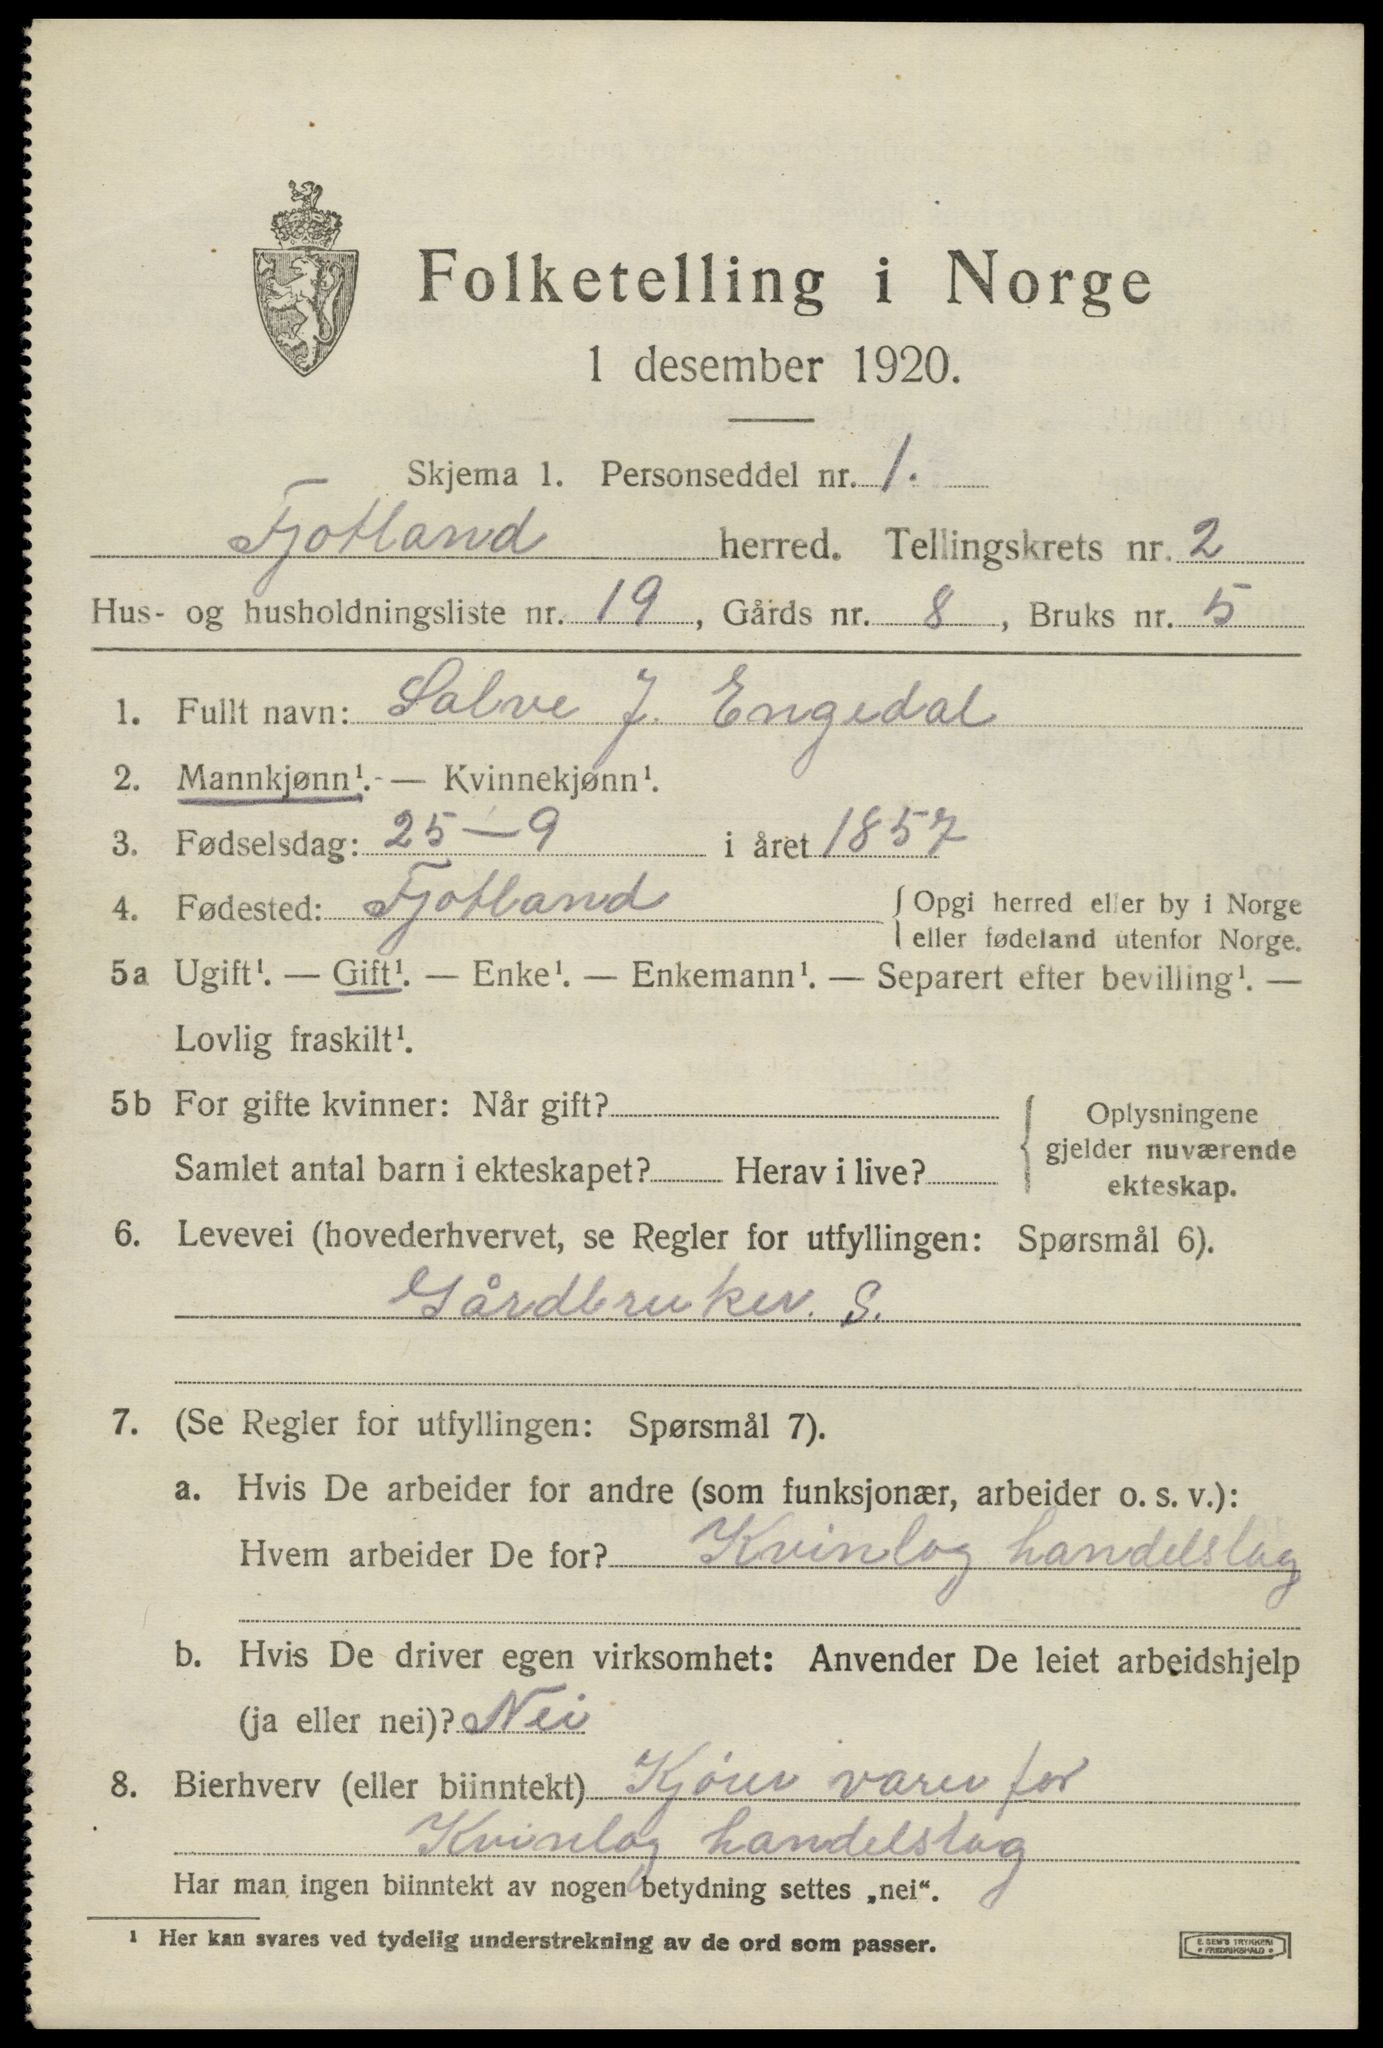 Folketelling i Norge
1 desember 1920.
Skjema 1. Personseddel nr. 1.
Fjotland herred. Tellingskrets nr. 2
Hus- og husholdningsliste nr. 19, Gårds nr. 8, Bruks nr. 5
1. Fullt navn: Salve J. Engedal
2. Mannkjønn¹. — Kvinnekjønn¹.
3. Fødselsdag: 25—9 i året 1857
4. Fødested: Fjotland { Opgi herred eller by i Norge
eller fødeland utenfor Norge.
5a Ugift¹. — Gift¹. — Enke¹. — Enkemann¹. — Separert efter bevilling¹. —
Lovlig fraskilt¹.
5b For gifte kvinner: Når gift?
Samlet antal barn i ekteskapet? Herav i live?
{ Oplysningene
gjelder nuværende
ekteskap.
6. Levevei (hovederhvervet, se Regler for utfyllingen: Spørsmål 6).
Gårdbruker. S.
7. (Se Regler for utfyllingen: Spørsmål 7).
a. Hvis De arbeider for andre (som funksjonær, arbeider o. s. v.):
Hvem arbeider De for? Kvinlog handelslag
b. Hvis De driver egen virksomhet: Anvender De leiet arbeidshjelp
(ja eller nei)? Nei
8. Bierhverv (eller biinntekt) Kjører varer for
Kvinlog handelslag
Har man ingen biinntekt av nogen betydning settes „nei“.
¹ Her kan svares ved tydelig understrekning av de ord som passer.
E. SEM'S TRYKKERI
• FREDRIKSHALD •